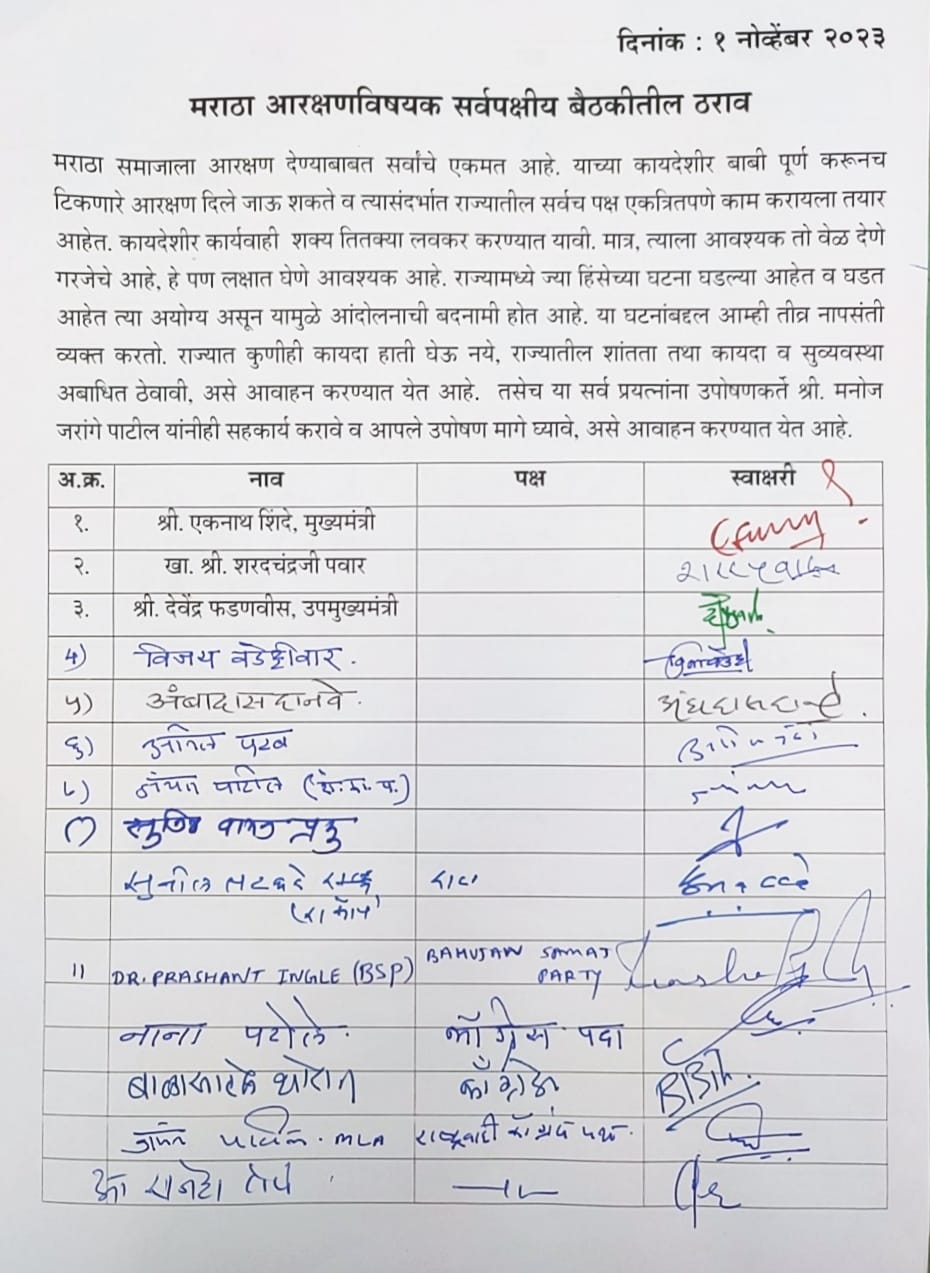 दिनांक : १ नोव्हेंबर २०२३
मराठा आरक्षणविषयक सर्वपक्षीय बैठकीतील ठराव
मराठा समाजाला आरक्षण देण्याबाबत सर्वांचे एकमत आहे. याच्या कायदेशीर बाबी पूर्ण करूनच
टिकणारे आरक्षण दिले जाऊ शकते व त्यासंदर्भात राज्यातील सर्वच पक्ष एकत्रितपणे काम करायला तयार
आहेत. कायदेशीर कार्यवाही शक्य तितक्या लवकर करण्यात यावी. मात्र, त्याला आवश्यक तो वेळ देणे
गरजेचे आहे, हे पण लक्षात घेणे आवश्यक आहे. राज्यामध्ये ज्या हिंसेच्या घटना घडल्या आहेत व घडत
आहेत त्या अयोग्य असून यामुळे आंदोलनाची बदनामी होत आहे. या घटनांबद्दल आम्ही तीव्र नापसंती
व्यक्त करतो. राज्यात कुणीही कायदा हाती घेऊ नये, राज्यातील शांतता तथा कायदा व सुव्यवस्था
अबाधित ठेवावी, असे आवाहन करण्यात येत आहे. तसेच या सर्व प्रयत्नांना उपोषणकर्ते श्री. मनोज
जरांगे पाटील यांनीही सहकार्य करावे व आपले उपोषण मागे घ्यावे, असे आवाहन करण्यात येत आहे.
अ.क्र. नाव पक्ष स्वाक्षरी
१. श्री. एकनाथ शिंदे, मुख्यमंत्री
२. खा. श्री. शरदचंद्रजी पवार
३. श्री. देवेंद्र फडणवीस, उपमुख्यमंत्री
4) विजय वडेट्टीवार.
५) अंबादास दानवे. अंबादास दानवे.
६) अनिल परब
पाटील
सुनील तटकरे
11 DR. PRASHANT INGLE (BSP) BAHUJAN SAMAJ PARTY
नाना पटोले. काँग्रेस पक्ष
बाळासाहेब थोरात काँग्रेस
पाटील. MLA राष्ट्रवादी काँग्रेस पक्ष.
टोपे —"—